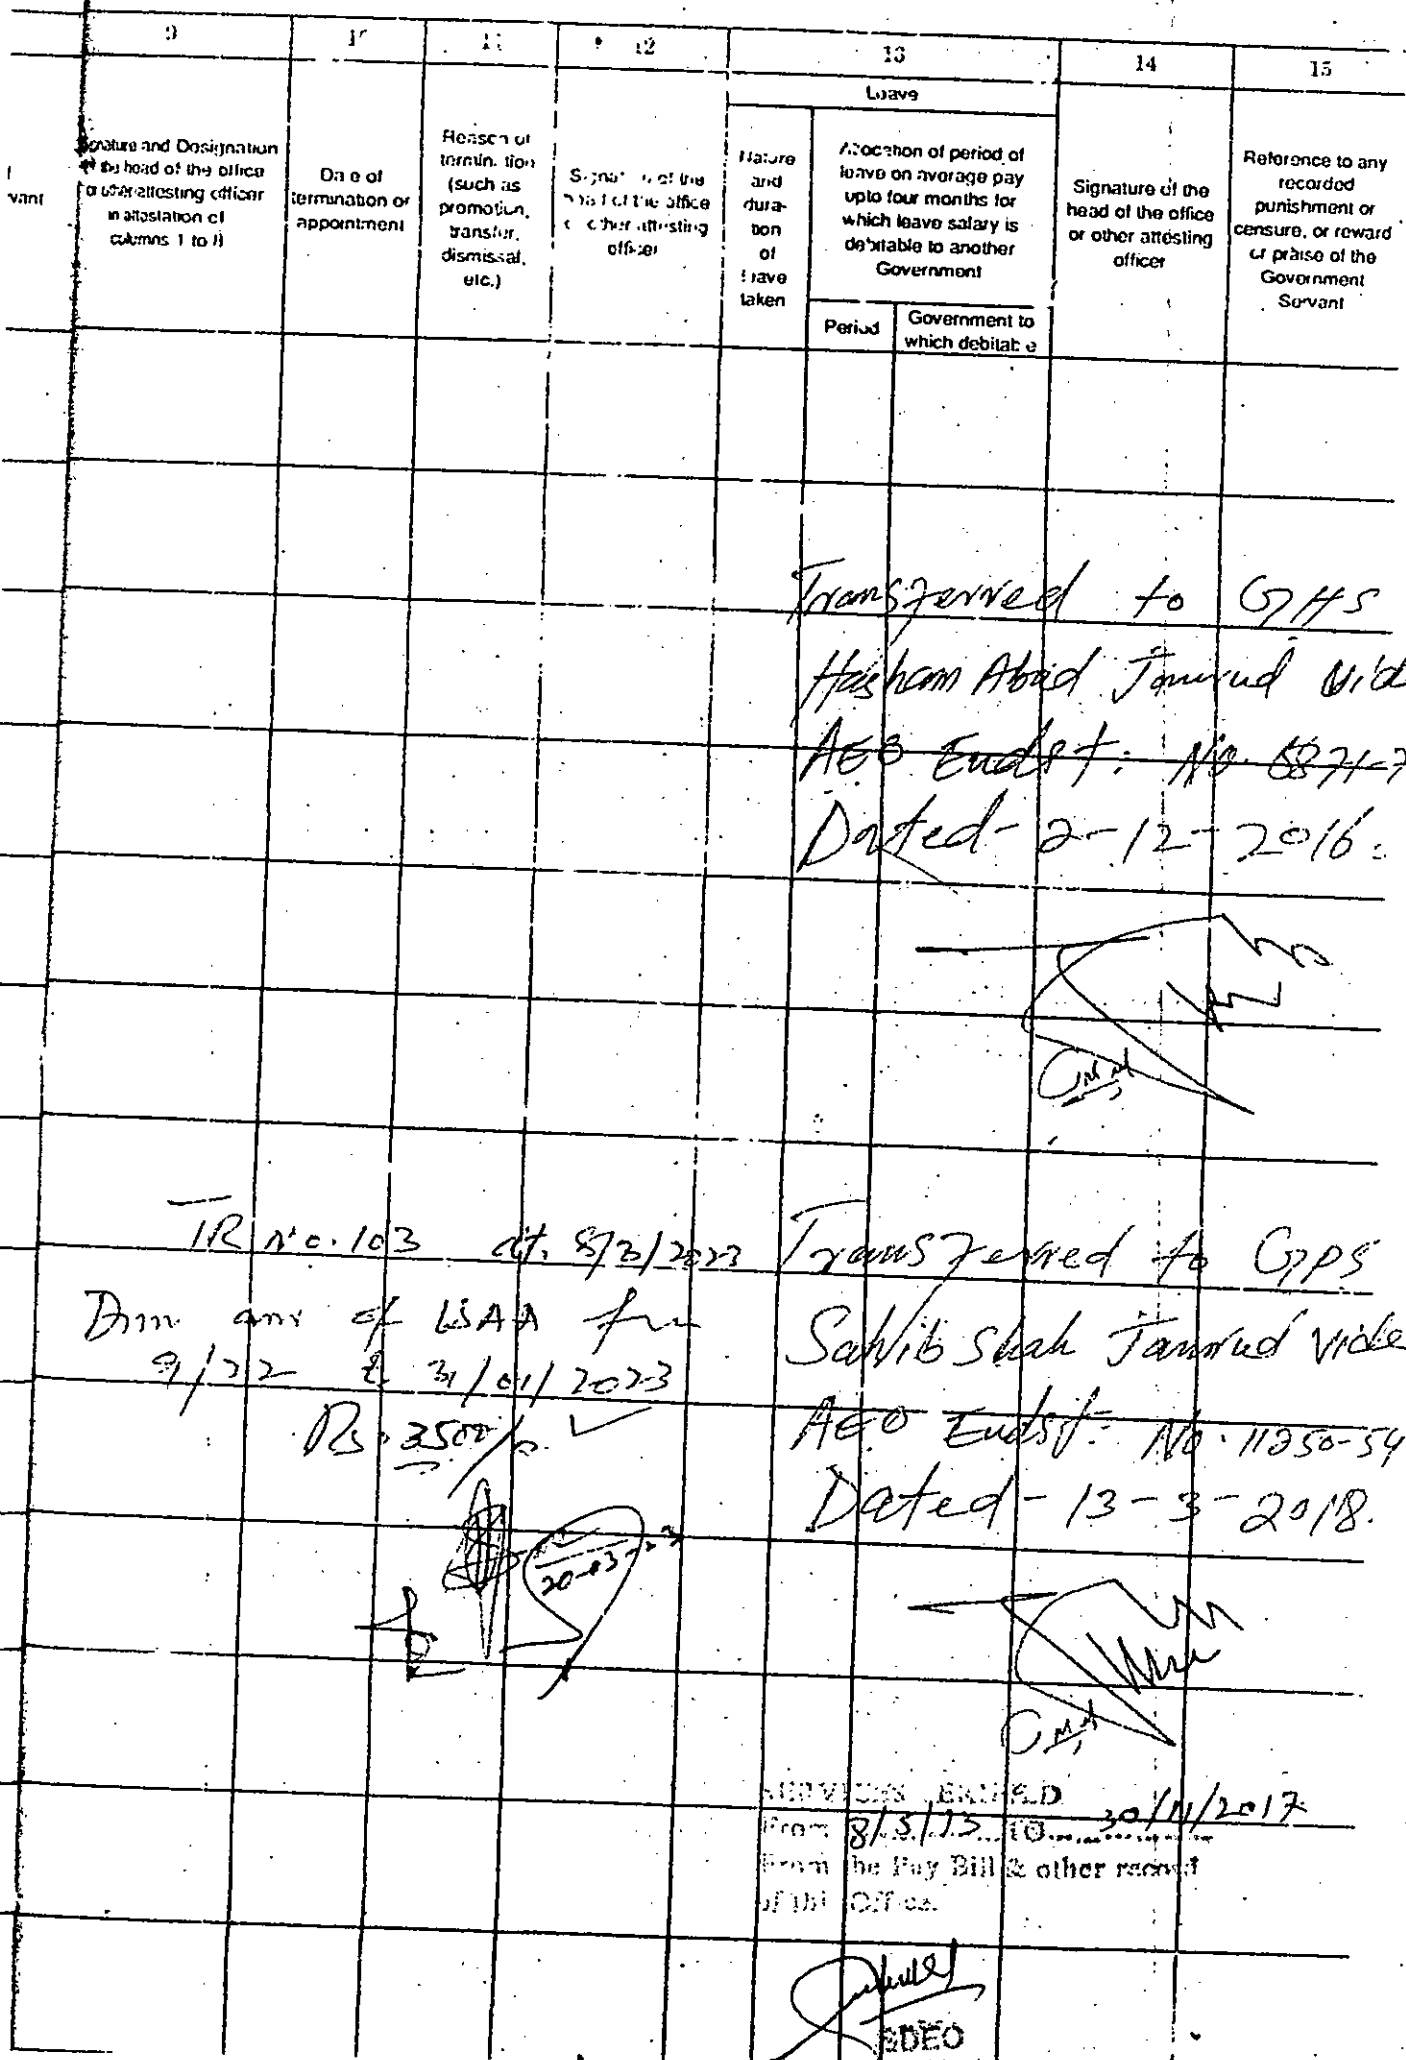 9 10 11 12 13 14 15
Leave
vant
Signature and Designation
of the head of the office
or other attesting officer
in attestation of
columns 1 to 8
Date of
termination or
appointment
Reason of
termination
(such as
promotion,
transfer,
dismissal,
etc.)
Signature of the
head of the office
or other attesting
officer
Nature
and
dura-
tion
of
leave
taken
Allocation of period of
leave on average pay
upto four months for
which leave salary is
debitable to another
Government
Period
Government to
which debitable
Signature of the
head of the office
or other attesting
officer
Reference to any
recorded
punishment or
censure, or reward
or praise of the
Government
Servant
Transferred to GHS
Hasham Abad Jamrud Vide
AEO Endst: No. 6871-7
Dated - 2-12-2016.
TR No. 103 dt. 8/3/2023
of USAA
9/22 31/01/2023
Rs. 3500/-
20-03-23
Transferred to GPS
Sahib Shah Jamrud Vide
AEO Endst: No. 11250-54
Dated - 13-3-2018.
SERVICES
From 8/5/13 TO 30/11/2017
From the Pay Bill & other record
of this Office.
SDEO